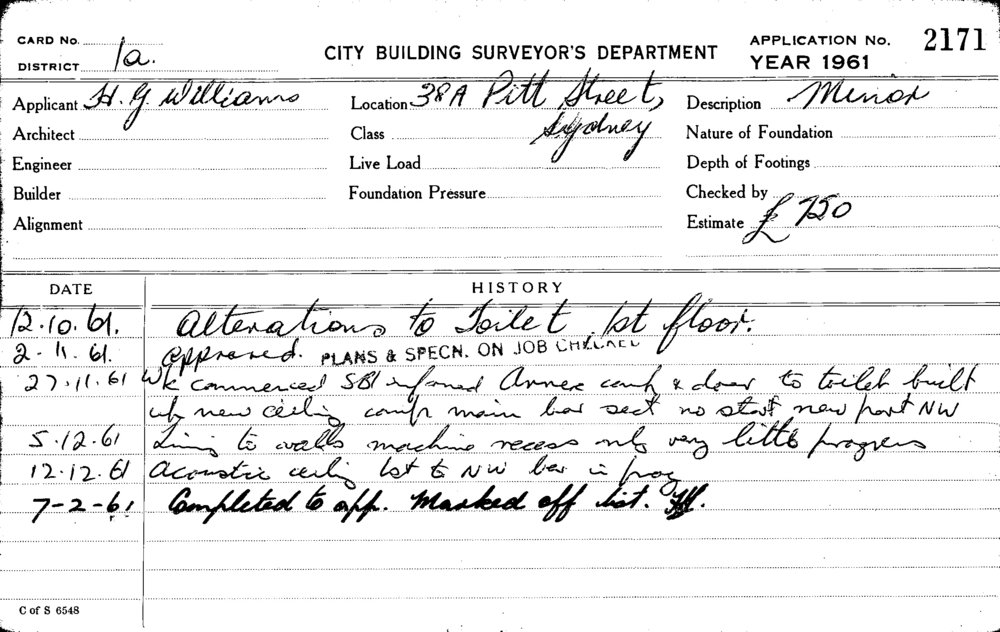 CARD No.
DISTRICT 1a.
CITY BUILDING SURVEYOR'S DEPARTMENT
APPLICATION No. 2171
YEAR 1961
Applicant H. G. Williams
Location 38A Pitt Street,
Sydney
Description Minor
Architect
Class
Nature of Foundation
Engineer
Live Load
Depth of Footings
Builder
Foundation Pressure
Checked by
Alignment
Estimate £ 750
DATE HISTORY
12.10.61. Alterations to Toilet 1st floor.
2.11.61. Approved. PLANS & SPECN. ON JOB CHECKED
27.11.61 Wk commenced SBI informed Annex & door to toilet built
up new ceiling main bar sect no start new part NW
5.12.61 Lining to walls machine recess only very little progress
12.12.61 Acoustic ceilg to NW bar in prog
7-2-61 Completed to app. Marked off list.
C of S 6548